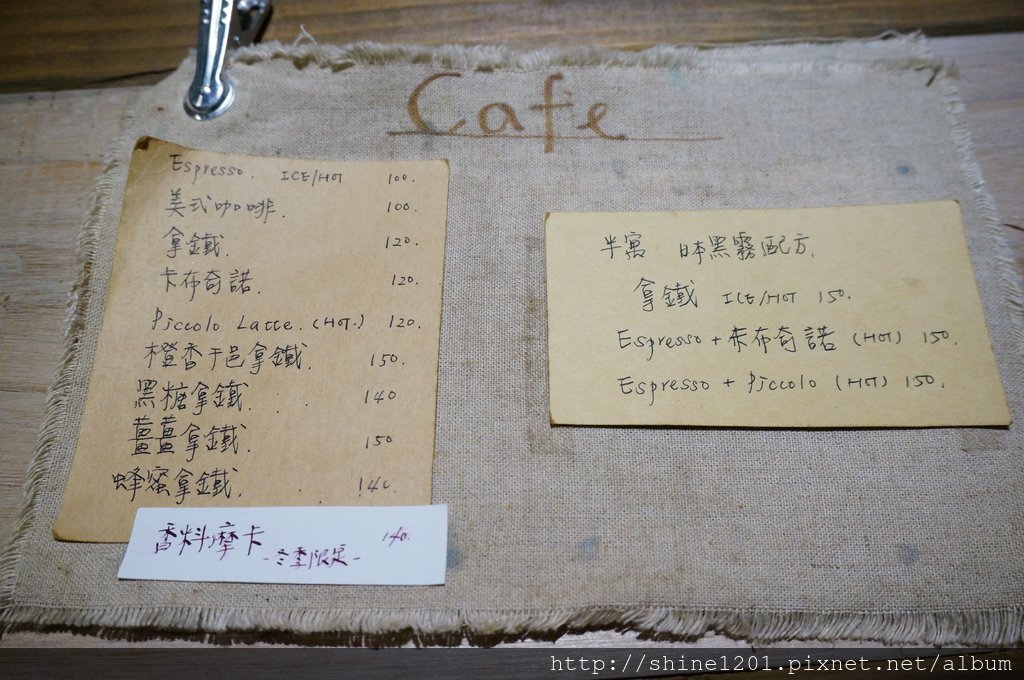 Cafe
Espresso. ICE/HOT 100.
美式咖啡. 100.
拿鐵. 120.
卡布奇諾. 120.
Piccolo Latte. (HOT.) 120.
橙香干邑拿鐵. 150.
黑糖拿鐵. 140
薑薑拿鐵. 150
蜂蜜拿鐵. 140.
香料摩卡 140.
-冬季限定-
半寓 日本黑霧配方.
拿鐵 ICE/HOT 150.
Espresso + 卡布奇諾 (HOT) 150.
Espresso + Piccolo (HOT) 150.
http://shine1201.pixnet.net/album